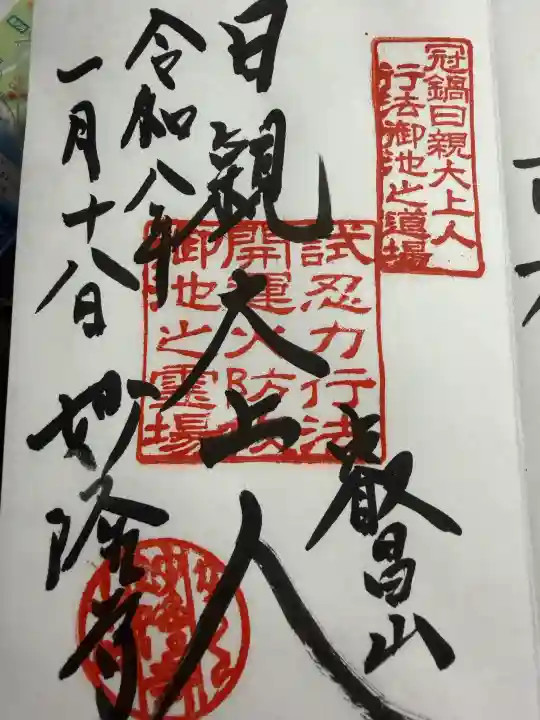 冠鍋日親大上人
行法御池之道場
叡昌山
日親大上人
試忍力行法
開運火防
御池之霊場
令和八年
一月十八日
妙隆寺